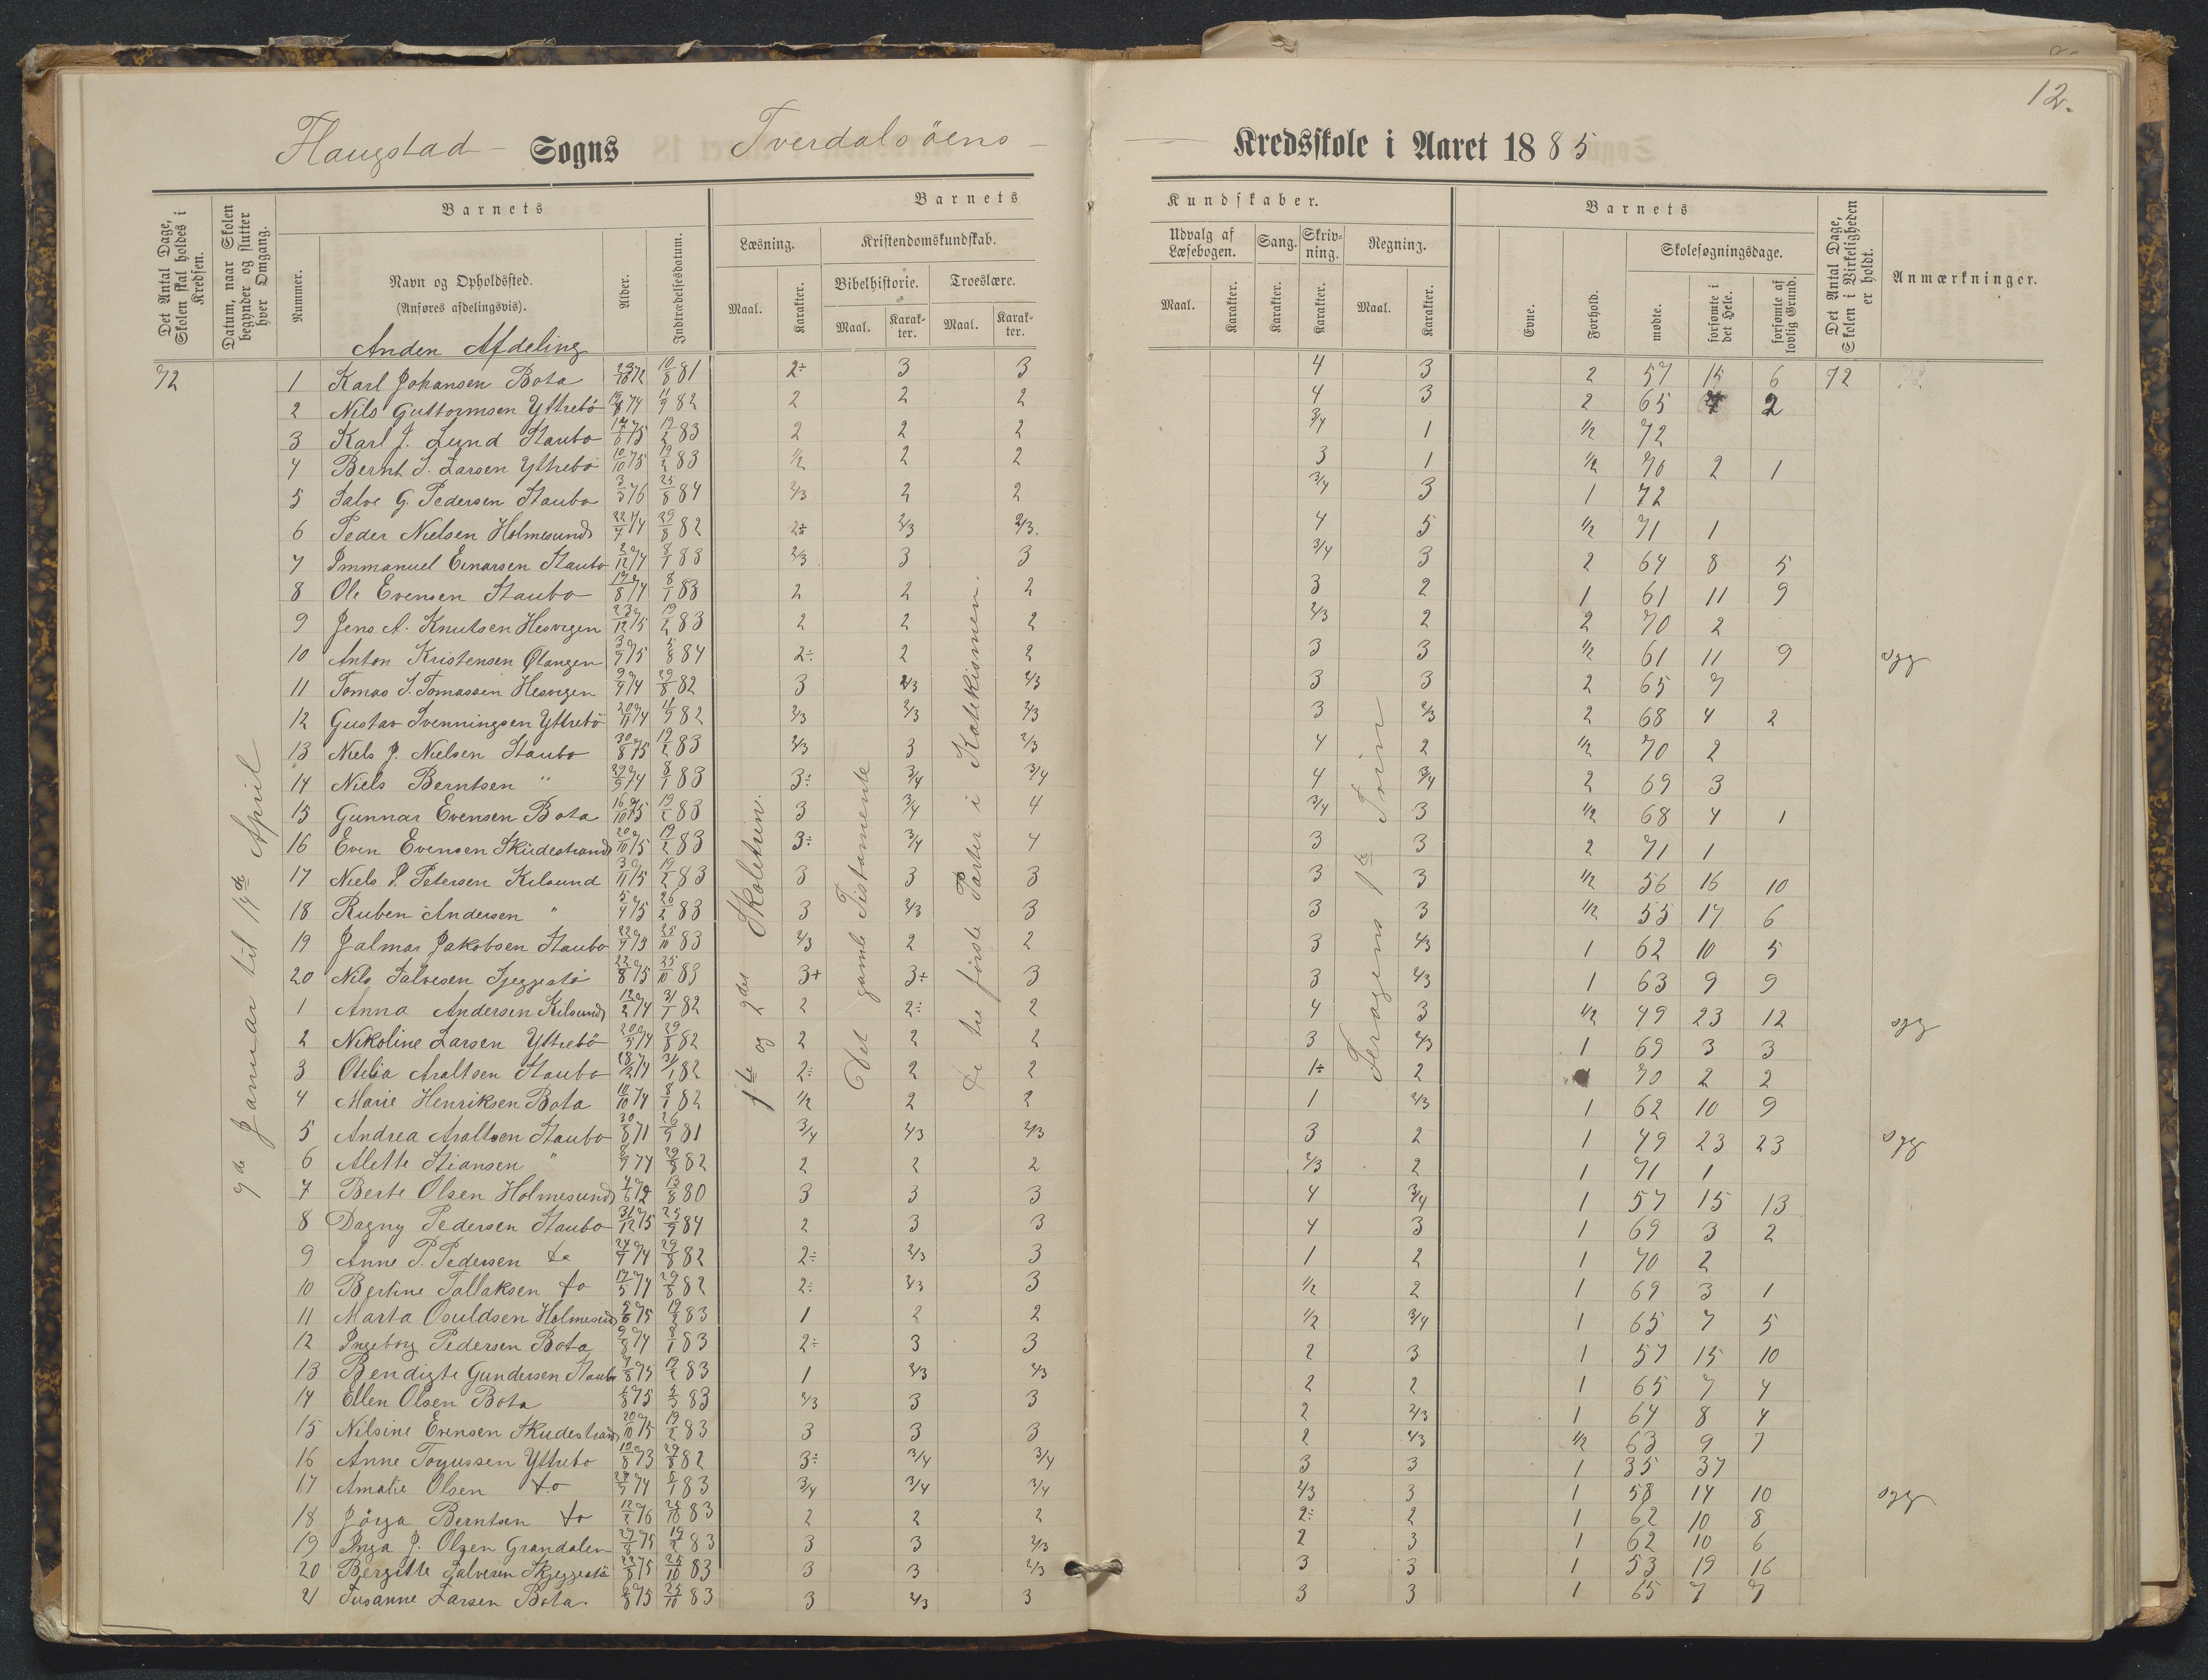 12.
Flaugstad Sogns Tverdalsöens Kredsskole i Aaret 1885
Det Antal Dage, Skolen skal holdes i Kredsen.
Datum, naar Skolen begynder og slutter hver Omgang.
Barnets
Nummer.
Navn og Opholdssted.
(Anføres afdelingsvis).
Alder.
Indtrædelsesdatum.
Barnets Kundskaber.
Læsning. Maal. Karakter.
Kristendomskundskab.
Bibelhistorie. Maal. Karakter.
Troeslære. Maal. Karakter.
Udvalg af Læsebogen. Maal. Karakter.
Sang. Karakter.
Skrivning. Karakter.
Regning. Maal. Karakter.
Barnets
Evne.
Forhold.
Skolesøgningsdage.
mødte.
forsømte i det Hele.
forsømte af lovlig Grund.
Det Antal Dage, Skolen i Virkeligheden er holdt.
Anmærkninger.
Anden Afdeling
72
9de Januar til 14de April
1ste og 2den Skoletrin.
Det gamle Testamente
De tre første Parter i Katekismen.
Feragens 1ste Trin
1 Karl Johansen Bota 10/8 81 2÷ 3 3 4 3 2 57 15 6 72
2 Nils Guttormsen Yttrebö 11/9 82 2 2 2 4 3 2 65 7 2
3 Karl J. Lund Staubo 17/6 75 19/2 83 2 2 2 3/4 1 1/2 72
4 Bernt J. Larsen Yttrebö 10/10 75 19/2 83 1/2 2 2 3 1 1/2 70 2 1
5 Salve G. Pedersen Staubo 3/3 76 25/8 84 2/3 2 2 3/4 3 1 72
6 Peder Nielsen Holmesund 22/4 74 29/8 82 2÷ 2/3 2/3. 4 5 1/2 71 1
7 Immanuel Einarsen Staubo 2/12 74 8/1 83 2/3 3 3 3/4 3 2 64 8 5
8 Ole Evensen Staubo 19/8 74 8/1 83 2 2 2 3 2 1 61 11 9
9 Jens A. Knutsen Hesvigen 23/12 75 19/2 83 2 2 2 2/3 2 2 70 2
10 Anton Kristensen Øtangen 3/9 75 5/8 84 2÷ 2 2 3 3 1/2 61 11 9
11 Tomas J. Tomassen Hesvigen 9/9 74 29/8 82 3 2/3 2/3 3 3 2 65 7
12 Gustav Svenningsen Yttrebö 20/11 74 11/9 82 2/3 2/3 2/3 3 2/3 2 68 4 2
13 Niels J. Nielsen Staubo 30/8 75 19/2 83 2/3 3 2/3 4 2 1/2 70 2
14 Niels Berntsen " 29/9 74 8/1 83 3÷ 3/4 3/4 4 3/4 2 69 3
15 Gunnar Evensen Bota 16/10 75 19/2 83 3 3/4 4 3/4 3 1/2 68 4 1
16 Even Evensen Skudestrand 20/10 75 19/2 83 3÷ 3/4 4 3 3 2 71 1
17 Niels P. Petersen Kilsund 3/11 75 19/2 83 3 3 3 3 3 1/2 56 16 10
18 Ruben Andersen " 5/4 75 26/2 83 3 2/3 3 3 3 1/2 55 17 6
19 Jalmar Jakobsen Staubo 22/9 75 25/10 83 2/3 2 2 3 2/3 1 62 10 5
20 Nils Salvesen Sjeggestö 22/8 75 25/10 83 3+ 3÷ 3 3 2/3 1 63 9 9
1 Anna Andersen Kilsund 12/2 74 31/1 82 2 2÷ 2 4 3 1/2 49 23 12
2 Nikoline Larsen Yttrebö 20/5 74 29/8 82 2 2 2 3 2/3 1 69 3 3
3 Otelia Araltsen Staubo 28/2 74 31/1 82 2÷ 2 2 1÷ 2 70 2 2
4 Marie Henriksen Bota 10/10 74 8/1 82 1/2 2 2 1 2/3 1 62 10 9
5 Andrea Araltsen Staubo 30/8 71 26/9 81 3/4 2/3 2/3 3 2 1 49 23 23
6 Alette Stiansen " 8/9 74 29/8 82 2 2 2 2/3 2 1 71 1
7 Berte Olsen Holmesund 4/6 72 13/8 80 3 3 3 4 3/4 1 57 15 13
8 Dagny Pedersen Staubo 31/12 75 25/9 84 2 3 3 4 3 1 69 3 2
9 Anne P. Pedersen do 24/9 74 29/8 82 2÷ 2/3 3 1 2 1 70 2
10 Bertine Tallaksen do 17/5 74 29/8 82 2÷ 2/3 3 1/2 2 1 69 3 1
11 Marta Osuldsen Holmesund 5/6 75 19/2 83 1 2 2 1/2 3/4 1 65 7 5
12 Ingeborg Pedersen Bota 9/8 74 8/1 83 2÷ 3 3 2 3 1 57 15 10
13 Bendigte Gundersen Staubo 7/8 75 19/2 83 1 2/3 2/3 2 2 1 65 7 4
14 Ellen Olsen Bota 75 83 2/3 3 3 2 2/3 1 64 8 4
15 Nilsine Evensen Skudestrand 20/10 75 19/2 83 3 3 3 2 2/3 1/2 63 9 7
16 Anne Togussen Yttrebo 10/8 73 29/8 82 3÷ 3/4 3/4 3 3 1 35 37
17 Amalie Olsen do 74 83 3/4 3/4 3/4 2/3 3 1 58 14 10
18 Jörga Berntsen do 12/2 76 25/10 83 2 2 2 2÷ 2 1 62 10 8
19 Inga J. Olsen Grandalen 75 19/2 83 3 3 2/3 2 3 1 62 10 6
20 Bergitte Salvesen Skjeggestö 22/8 75 25/10 83 3 3 2/3 3 3 1 53 19 16
21 Susanne Larsen Bota. 75 25/10 83 3 2/3 3 3 3 1 65 7 7